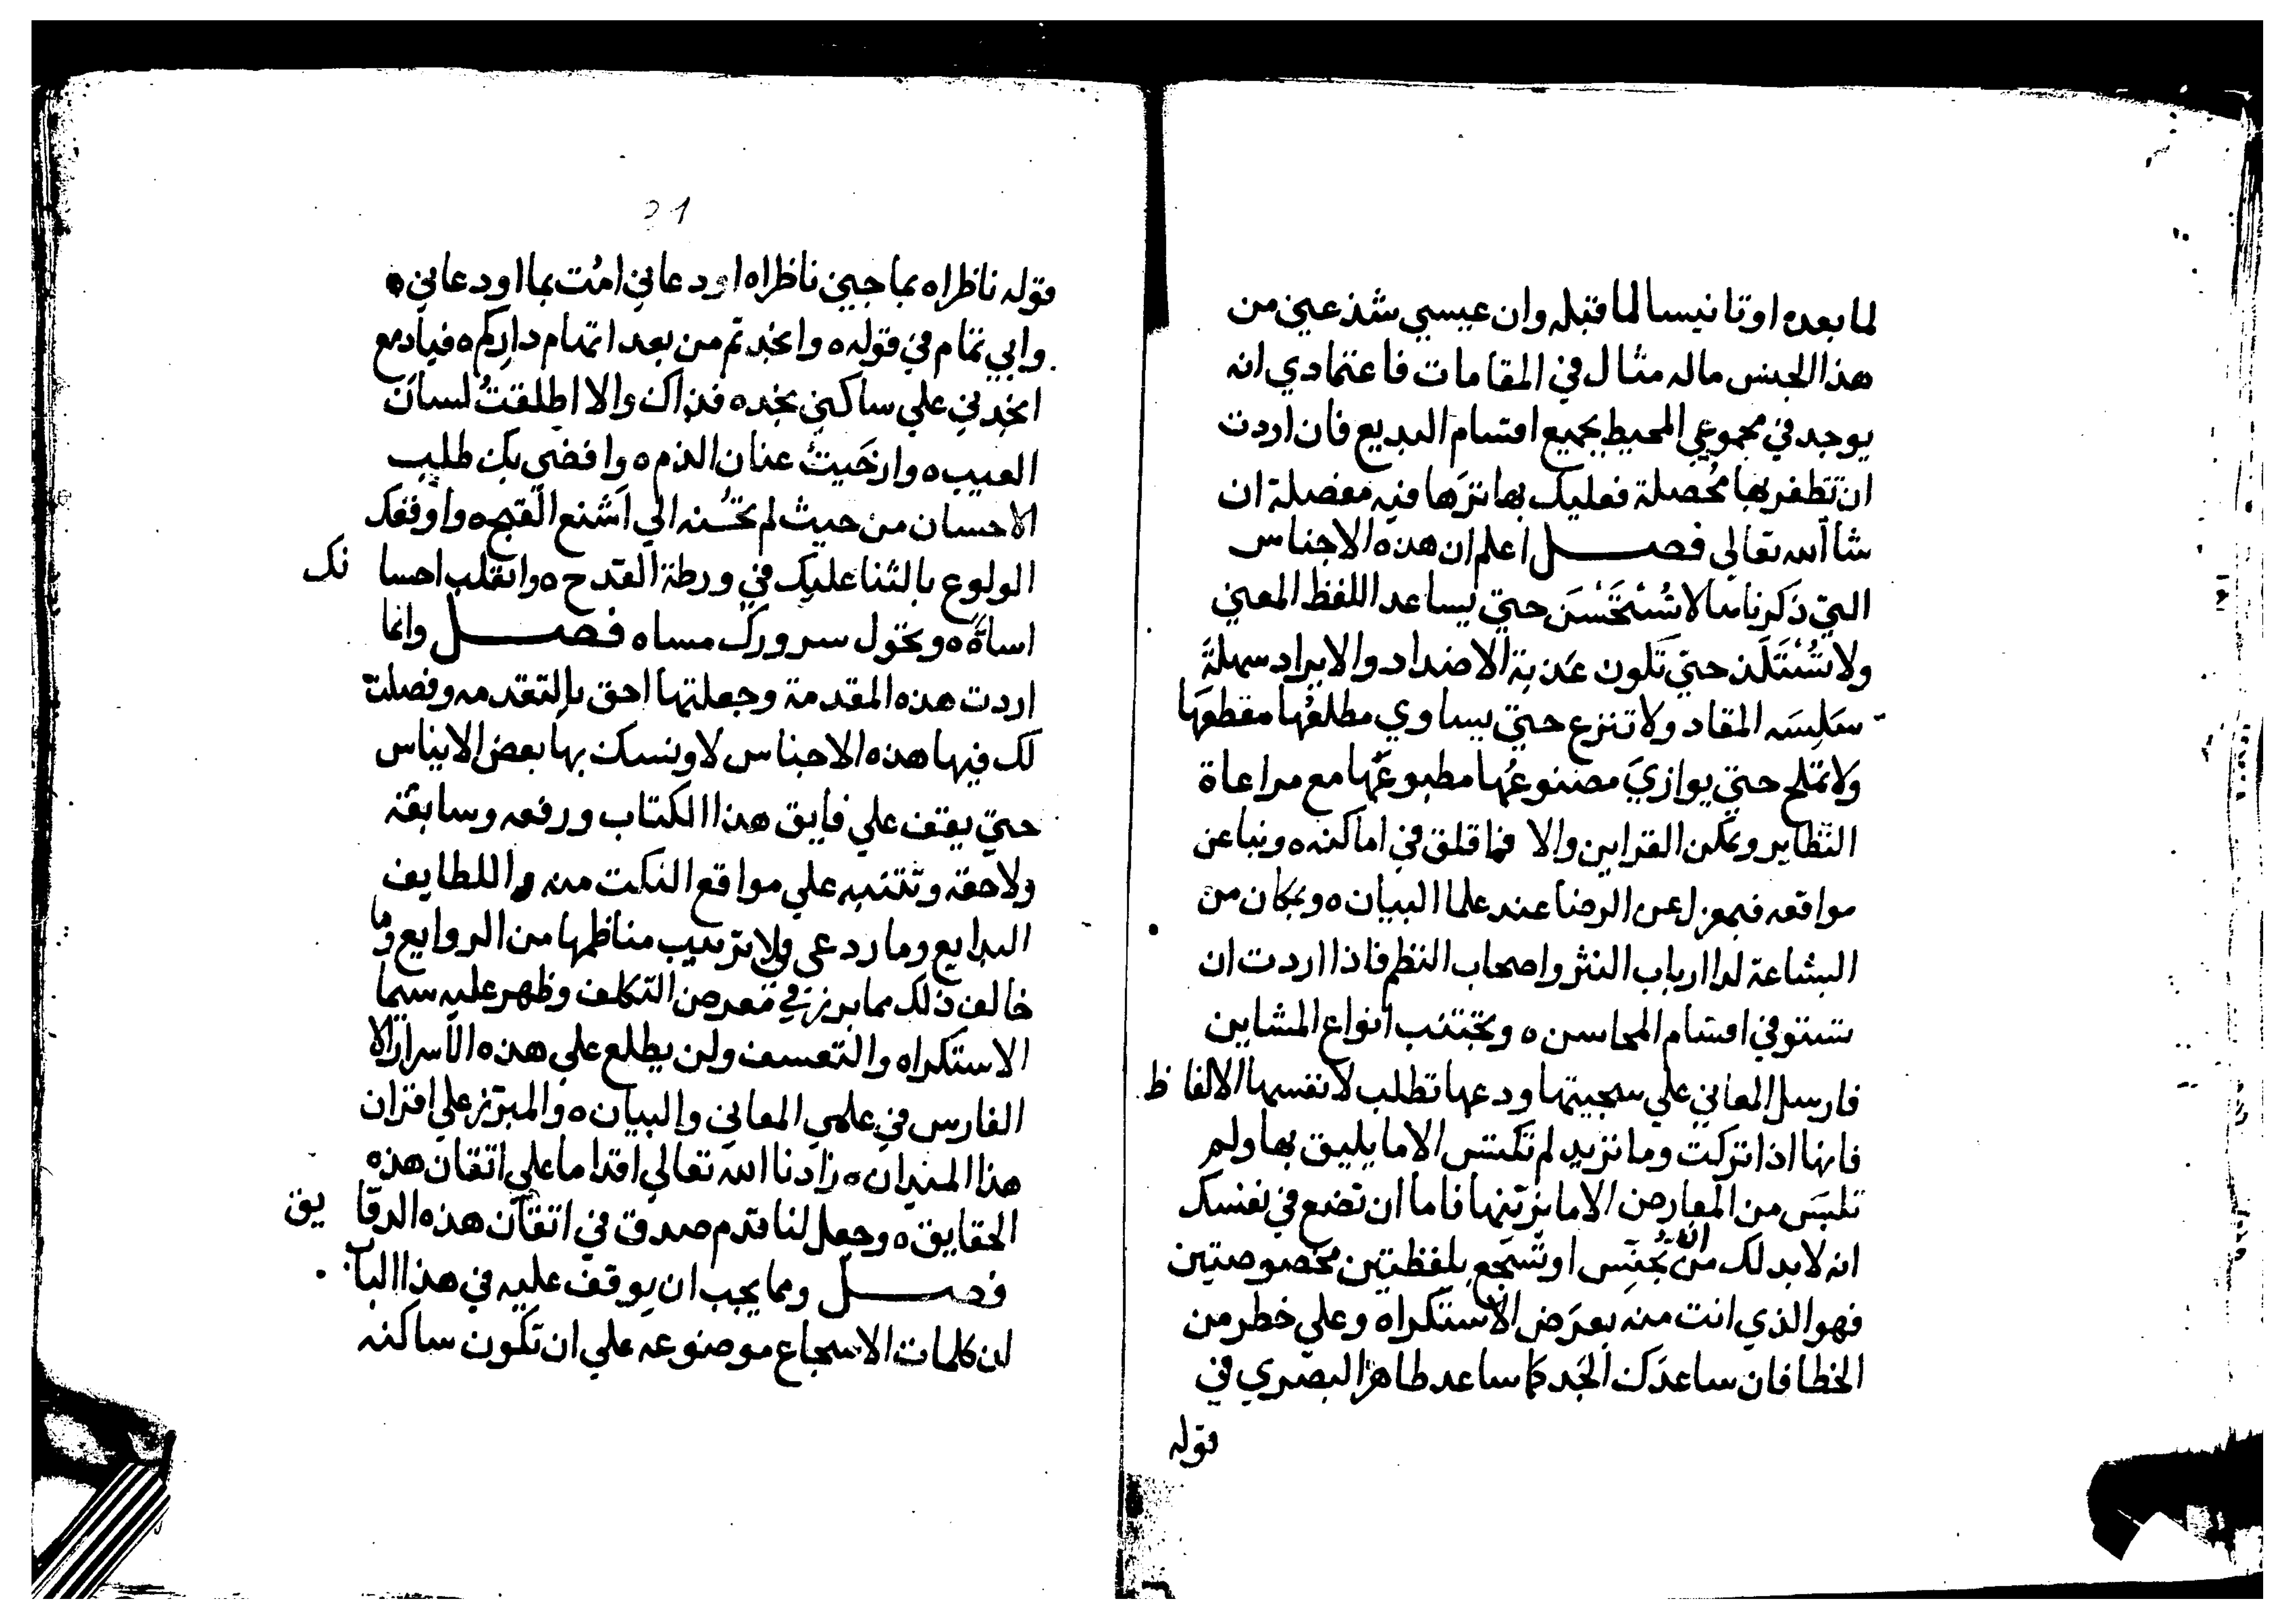 لما بعده اوتا نيسا لما قبله وان عيسي شذ عني من
هذا الجنس ماله مثال في المقامات فاعتمادي انه
يوجد في مجموعي المحيط بجميع اقسام البديع فان اردت
ان تظفر بها محصلة فعليك بها ترها فيه مفصلة ان
شا الله تعالي فصل اعلم ان هذه الاجناس
التي ذكرناها لا تُسْتَحْسَن حتي يساعد اللفظ المعني
ولا تُسْتَلَذ حتي تكون عَذبة الاصدار والايراد سهلةً
سَلِسَه المقاد ولا تنزع حتي يساوي مطلعُها مقطعَها
ولا تملح حتي يوازيَ مصنوعُها مطبوعَها مع مراعاة
النظاير وتمكن القراين والا فما قلق في اماكنه ه ونبا عن
مواقعه فبمعزل عن الرضا عند علما البيان ه وبمكان من
البشاعة لدا ارباب النثر واصحاب النظم فاذا اردت ان
تستوفي اقسام المحاسن ه وتجتنب انواع المشاين
فارسل المعاني علي سجيتها ودعها تطلب لانفسها الالفا ظ
فانها اذا تركت وما تريد لم تكتس الا ما يليق بها ولم
تلبَس من المعارض الا ما يزينها فاما ان تضع في نفسك
انه لابد لك من ان تُجنِّس او تسَجع بلفظتين مخصوصتين
فهو الذي انت منه بعرَض الاستكراه وعلي خطر من
الخطا فان ساعدك الجَد كما ساعد طاهرا البصري في
قوله
21
قوله ناظراه بما جني ناظراه اودعاني امُت بما اودعاني ه
وابي تمام في قوله ه وانجدتم من بعد اتهام داركم ه فيا دمع
انجدني علي ساكني نجده فذاك والا اطلقتُ لسان
العيب ه وارخَيتُ عنان الذم ه وافضي بك طلب
الاحسان من حيث لم تحسنه الي اشنع القبح ه واوقعك
الولوع بالثنا عليك في ورطة القدح ه وانقلب احسا نك
اساةً ه وتحول سرورك مساه فصل وانما
اردت هذه المقدمة وجعلتها احق بالتقدمه وفصلت
لك فيها هذه الاجناس لاونسك بها بعض الايناس
حتي يقف علي فايق هذا الكتاب ورفعه وسابقة
ولاحقه وتتنبه علي مواقع النكت منه واللطايف
البدايع وما ردعي ولا ترتيب مناظمها من الروايع وما
خالف ذلك مما برز في معرض التكلف وظهر عليه سيما
الاستكراه والتعسف ولن يطلع علي هذه الاسرار الا
الفارس في علمي المعاني والبيان ه والمبرّز علي اقران
هذا الميدان ه زادنا الله تعالي اقداما علي اتقان هذه
الحقايق ه وجعل لنا قدم صدق في اتقان هذه الدقا يق
فصل ومما يجب ان يوقف عليه في هذا البا
ان كلمات الاسجاع موضوعه علي ان تكون ساكنه